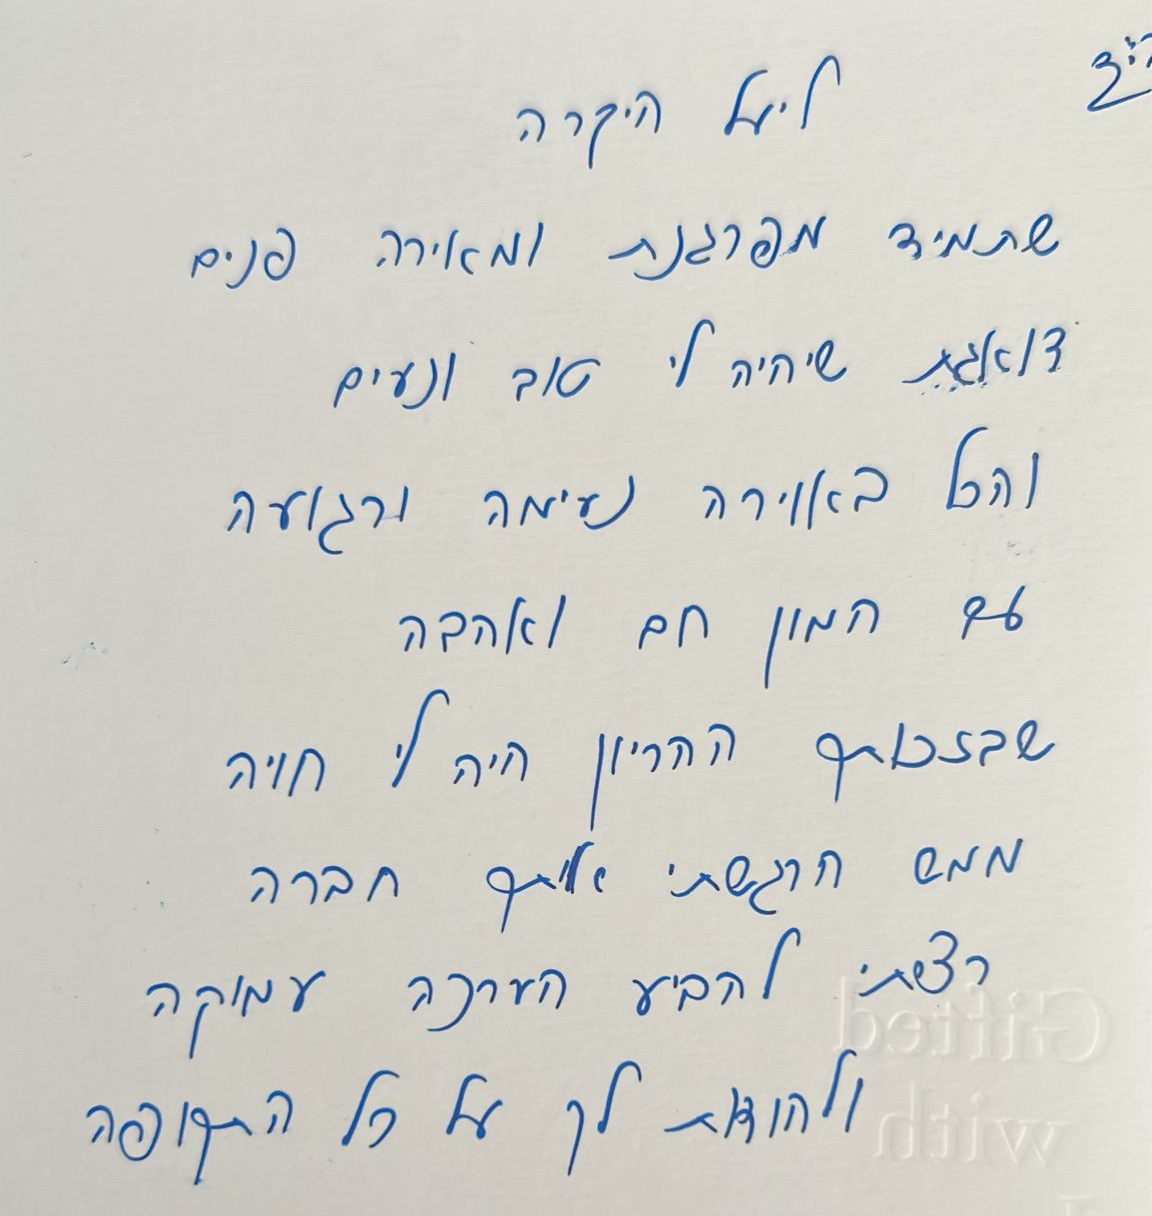 ליעל היקרה
שתמיד מפרגנת ומאירה פנים
דואגת שיהיה לי טוב ונעים
והכל באוירה נעימה ורגועה
עם המון חם ואהבה
שבזכותך ההריון היה לי חויה
ממש הרגשתי איתך חברה
רצתי להביע הערכה עמוקה
ולהודות לך על כל התקופה
Gifted
with